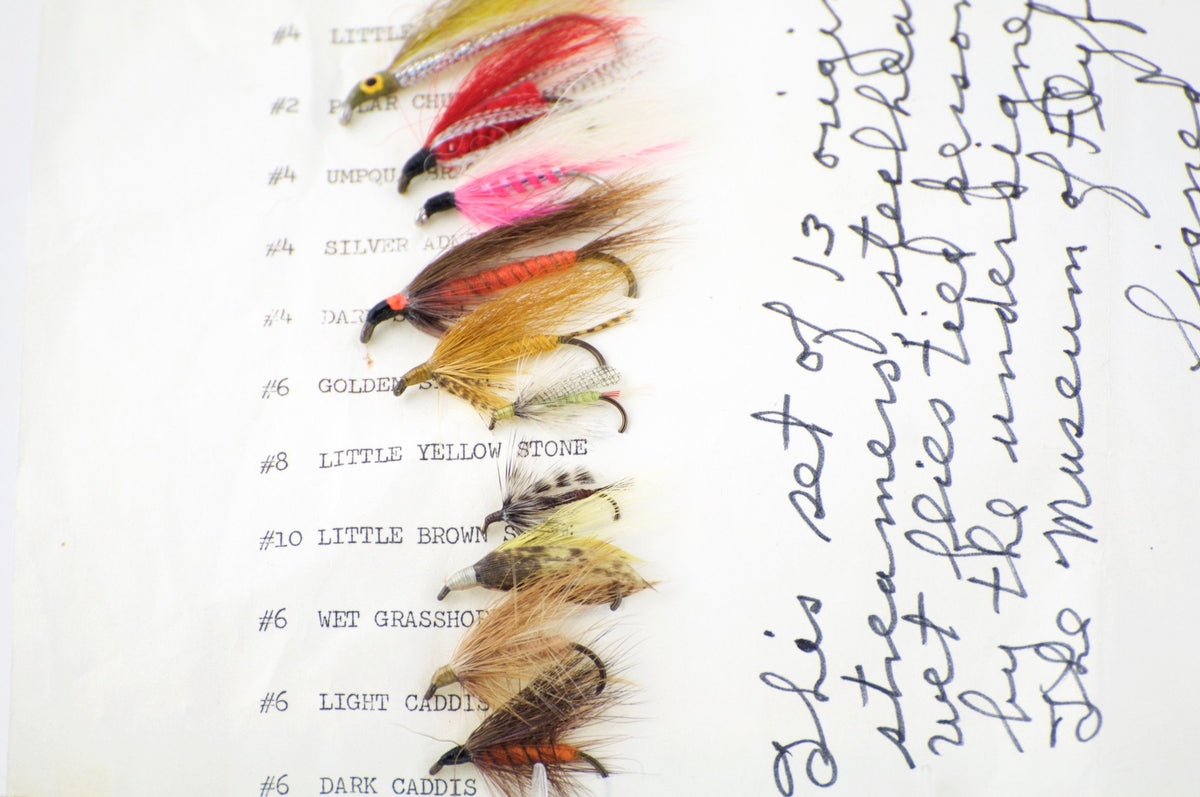 #4 LITTLE
#2 POLAR CHU
#4 UMPQUA
#4 SILVER AD
#4 DARK S
#6 GOLDEN S
#8 LITTLE YELLOW STONE
#10 LITTLE BROWN S
#6 WET GRASSHOP
#6 LIGHT CADDIS
#6 DARK CADDIS
This set of 13 origi
streamers steelhea
wet flies tied person
by the undersigne
The Museum of Flyf
Signed